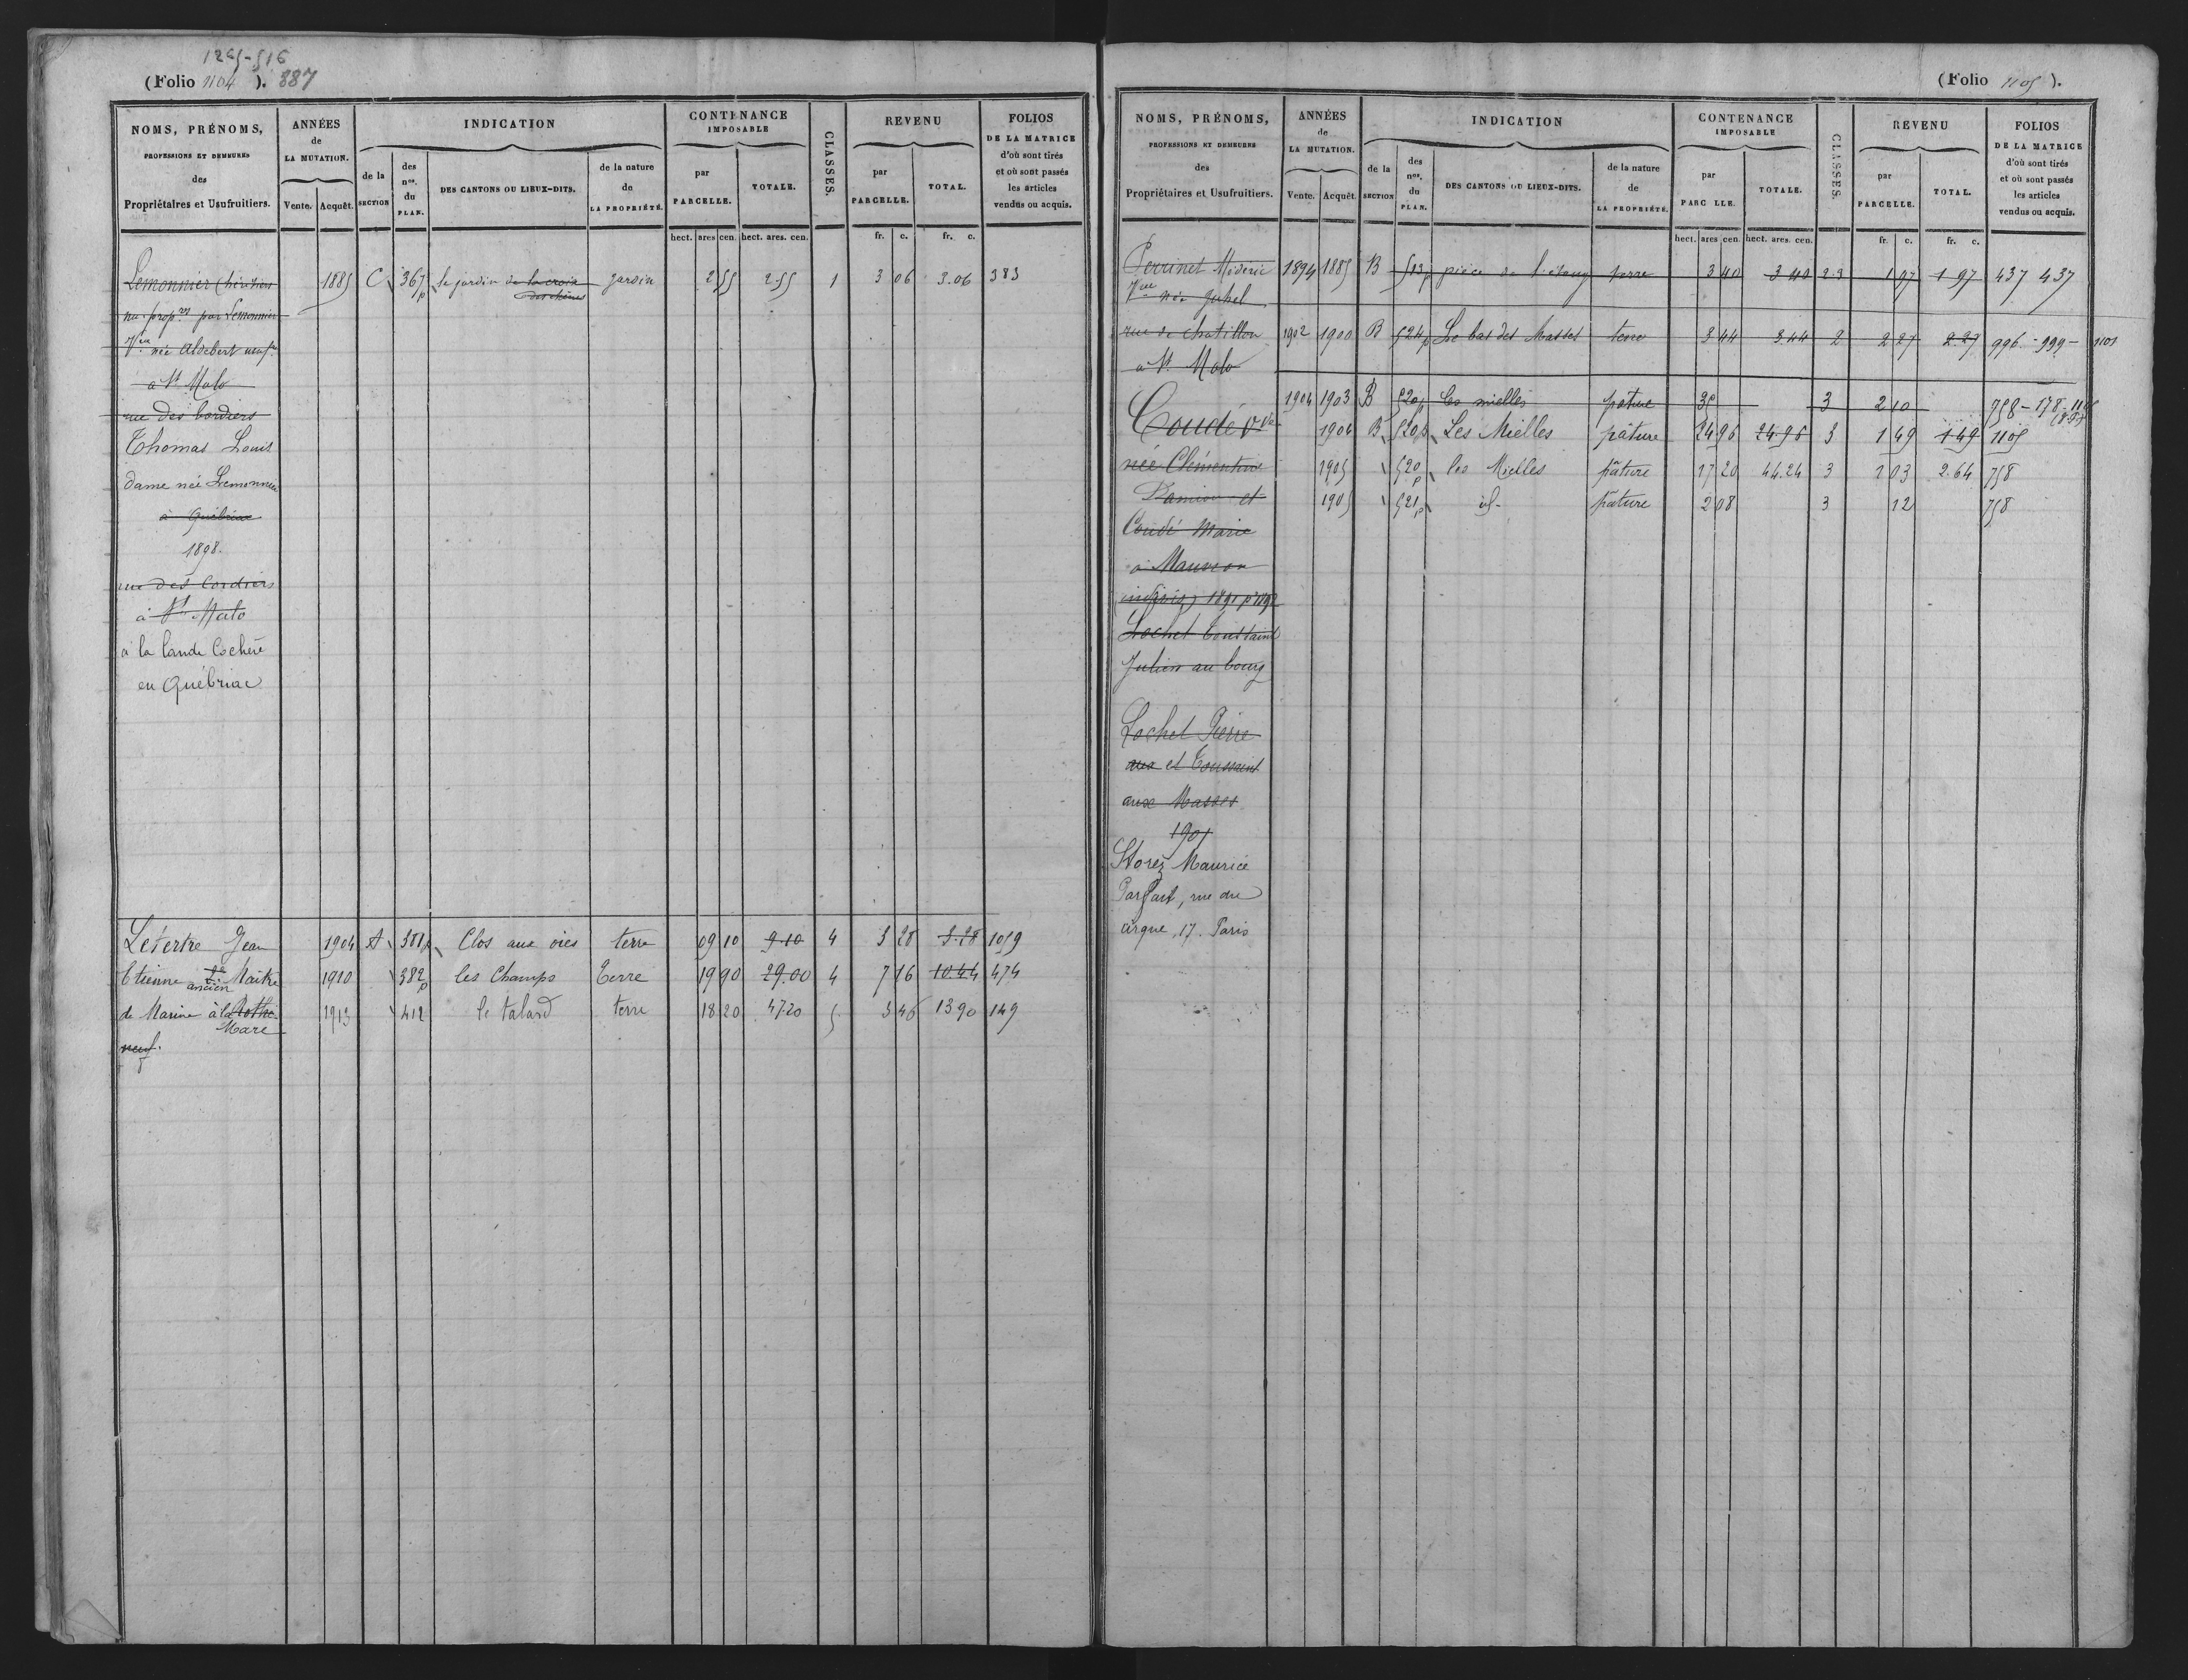 1295-516
(Folio 1104 ). 387
NOMS, PRÉNOMS,
PROFESSIONS ET DEMEURES
des
Propriétaires et Usufruitiers.
ANNÉES
de
LA MUTATION.
Vente. Acquêt.
INDICATION
de la
SECTION
des
nos.
du
PLAN.
DES CANTONS OU LIEUX-DITS.
de la nature
de
LA PROPRIÉTÉ.
CONTENANCE
IMPOSABLE
par
PARCELLE.
TOTALE.
CLASSES.
REVENU
par
PARCELLE.
TOTAL.
FOLIOS
DE LA MATRICE
d'où sont tirés
et où sont passés
les articles
vendus ou acquis.
hect. ares cen. hect. ares. cen. fr. c. fr. c.
Lemonnier (héritiers 1885 C 367p le jardin de la croix jardin 2 55 2.55 1 3 06 3.06 383
des chênes
nu-propres par Lemonnier
Vve née Aldebert
à St Malo
rue des Cordiers
Thomas Louis
dame née Lemonnier
à Québriac
1898.
rue des Cordiers
à St Malo
à la lande Cochère
en Québriac
Lesertre Jean 1904 A 381p Clos aux oies terre 09 10 9.10 4 3 28 3.28 1059
Etienne Maître 1910 382p les Champs Terre 19 90 29.00 4 7 16 10.44 474
ancien
de Marine à la Rothé 1913 412 le talard terre 18 20 47.20 5 3 46 13 90 149
Mare
neuf.
(Folio 1105 ).
NOMS, PRÉNOMS,
PROFESSIONS ET DEMEURES
des
Propriétaires et Usufruitiers.
ANNÉES
de
LA MUTATION.
Vente. Acquêt.
INDICATION
de la
SECTION
des
nos.
du
PLAN.
DES CANTONS OU LIEUX-DITS.
de la nature
de
LA PROPRIÉTÉ.
CONTENANCE
IMPOSABLE
par
PARC LLE.
TOTALE.
CLASSES.
REVENU
par
PARCELLE.
TOTAL.
FOLIOS
DE LA MATRICE
d'où sont tirés
et où sont passés
les articles
vendus ou acquis.
hect. ares cen. hect. ares. cen. fr. c. fr. c.
Perrinet Médéric 1894 1885 B 513p pièce de l'étang terre 3 40 3 40 2.3 1 97 1 97 437 437
Vve née Juhel
rue de Chatillon 1902 1900 B 524p Le bas des Masses terre 3 44 3.44 2 2 27 2.27 996 - 999 - 1101
à St Malo
1904 1903 B 520p les mielles pâture 35 3 2 10 758 - 178
Coudé Vve 1904 B 520p Les Mielles pâture 24 96 24.96 3 1 49 1 49 1105
née Clémentine 1905 520p les Mielles pâture 17 20 44.24 3 1 03 2.64 758
Damion et 1905 521p id- pâture 2 08 3 12 758
Coudé Marie
à Mauron
Lochet Toussaint
Julien au bourg
Lochet Pierre
aux et Toussaint
aux Masses
1901
Storez Maurice
Parfait, rue du
cirque, 17. Paris